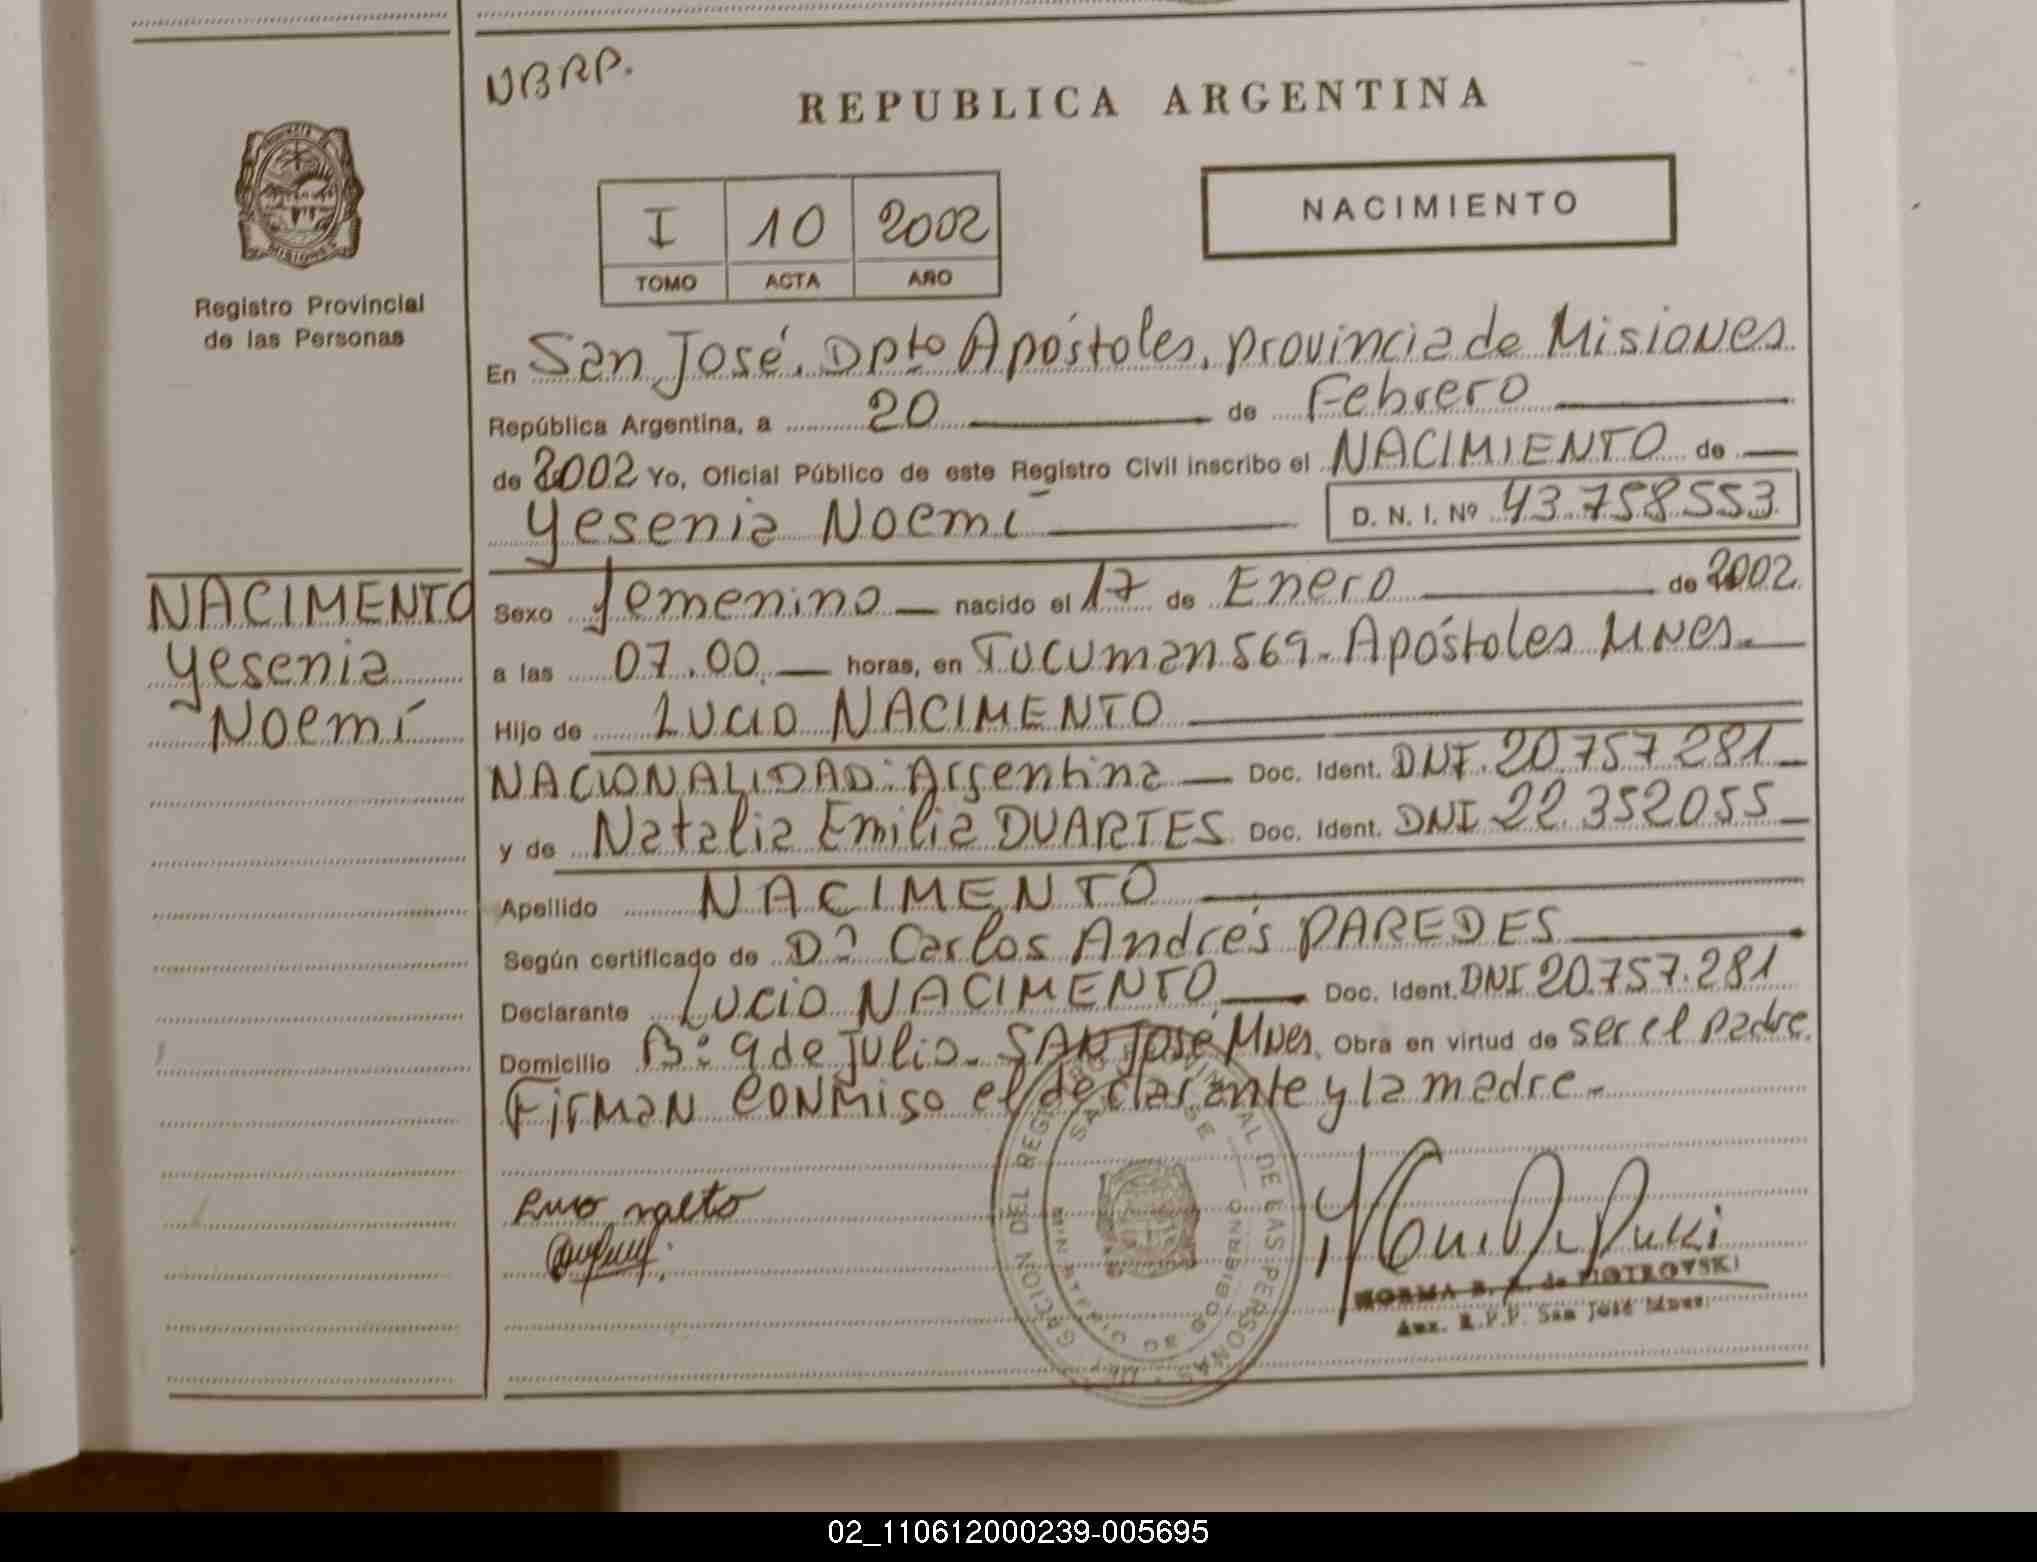 NBRP.
REPUBLICA ARGENTINA
NACIMIENTO
I 10 2002
TOMO ACTA AÑO
MISIONES
Registro Provincial
de las Personas
En San José, Dpto Apóstoles, provincia de Misiones.
República Argentina, a 20 de Febrero
de 2002 Yo, Oficial Público de este Registro Civil inscribo el NACIMIENTO de
Yesenia Noemí D. N. I. Nº 43.758.553
NACIMENTO
Yesenia
Noemí
Sexo femenino nacido el 17 de Enero de 2002.
a las 07.00. horas, en Tucuman 569- Apóstoles Mnes.
Hijo de Lucio NACIMENTO
NACIONALIDAD: Argentina Doc. Ident. DNI. 20.757.281
y de Natalia Emilia DUARTES Doc. Ident. DNI 22.352055
Apellido NACIMENTO
Según certificado de Dº Carlos Andrés PAREDES
Declarante Lucio NACIMENTO Doc. Ident. DNI 20.757.281
Domicilio Bº 9 de Julio- SAN José Mnes. Obra en virtud de ser el padre.
Firman conmiso el declarante y la madre.-
NORMA B. de PIOTROVSKI
Aux. R.P.P. San José Mnes.
02_110612000239-005695